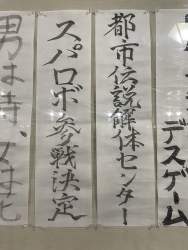 デスゲーム
都市伝説解体センター
スパロボ参戦決定
男は